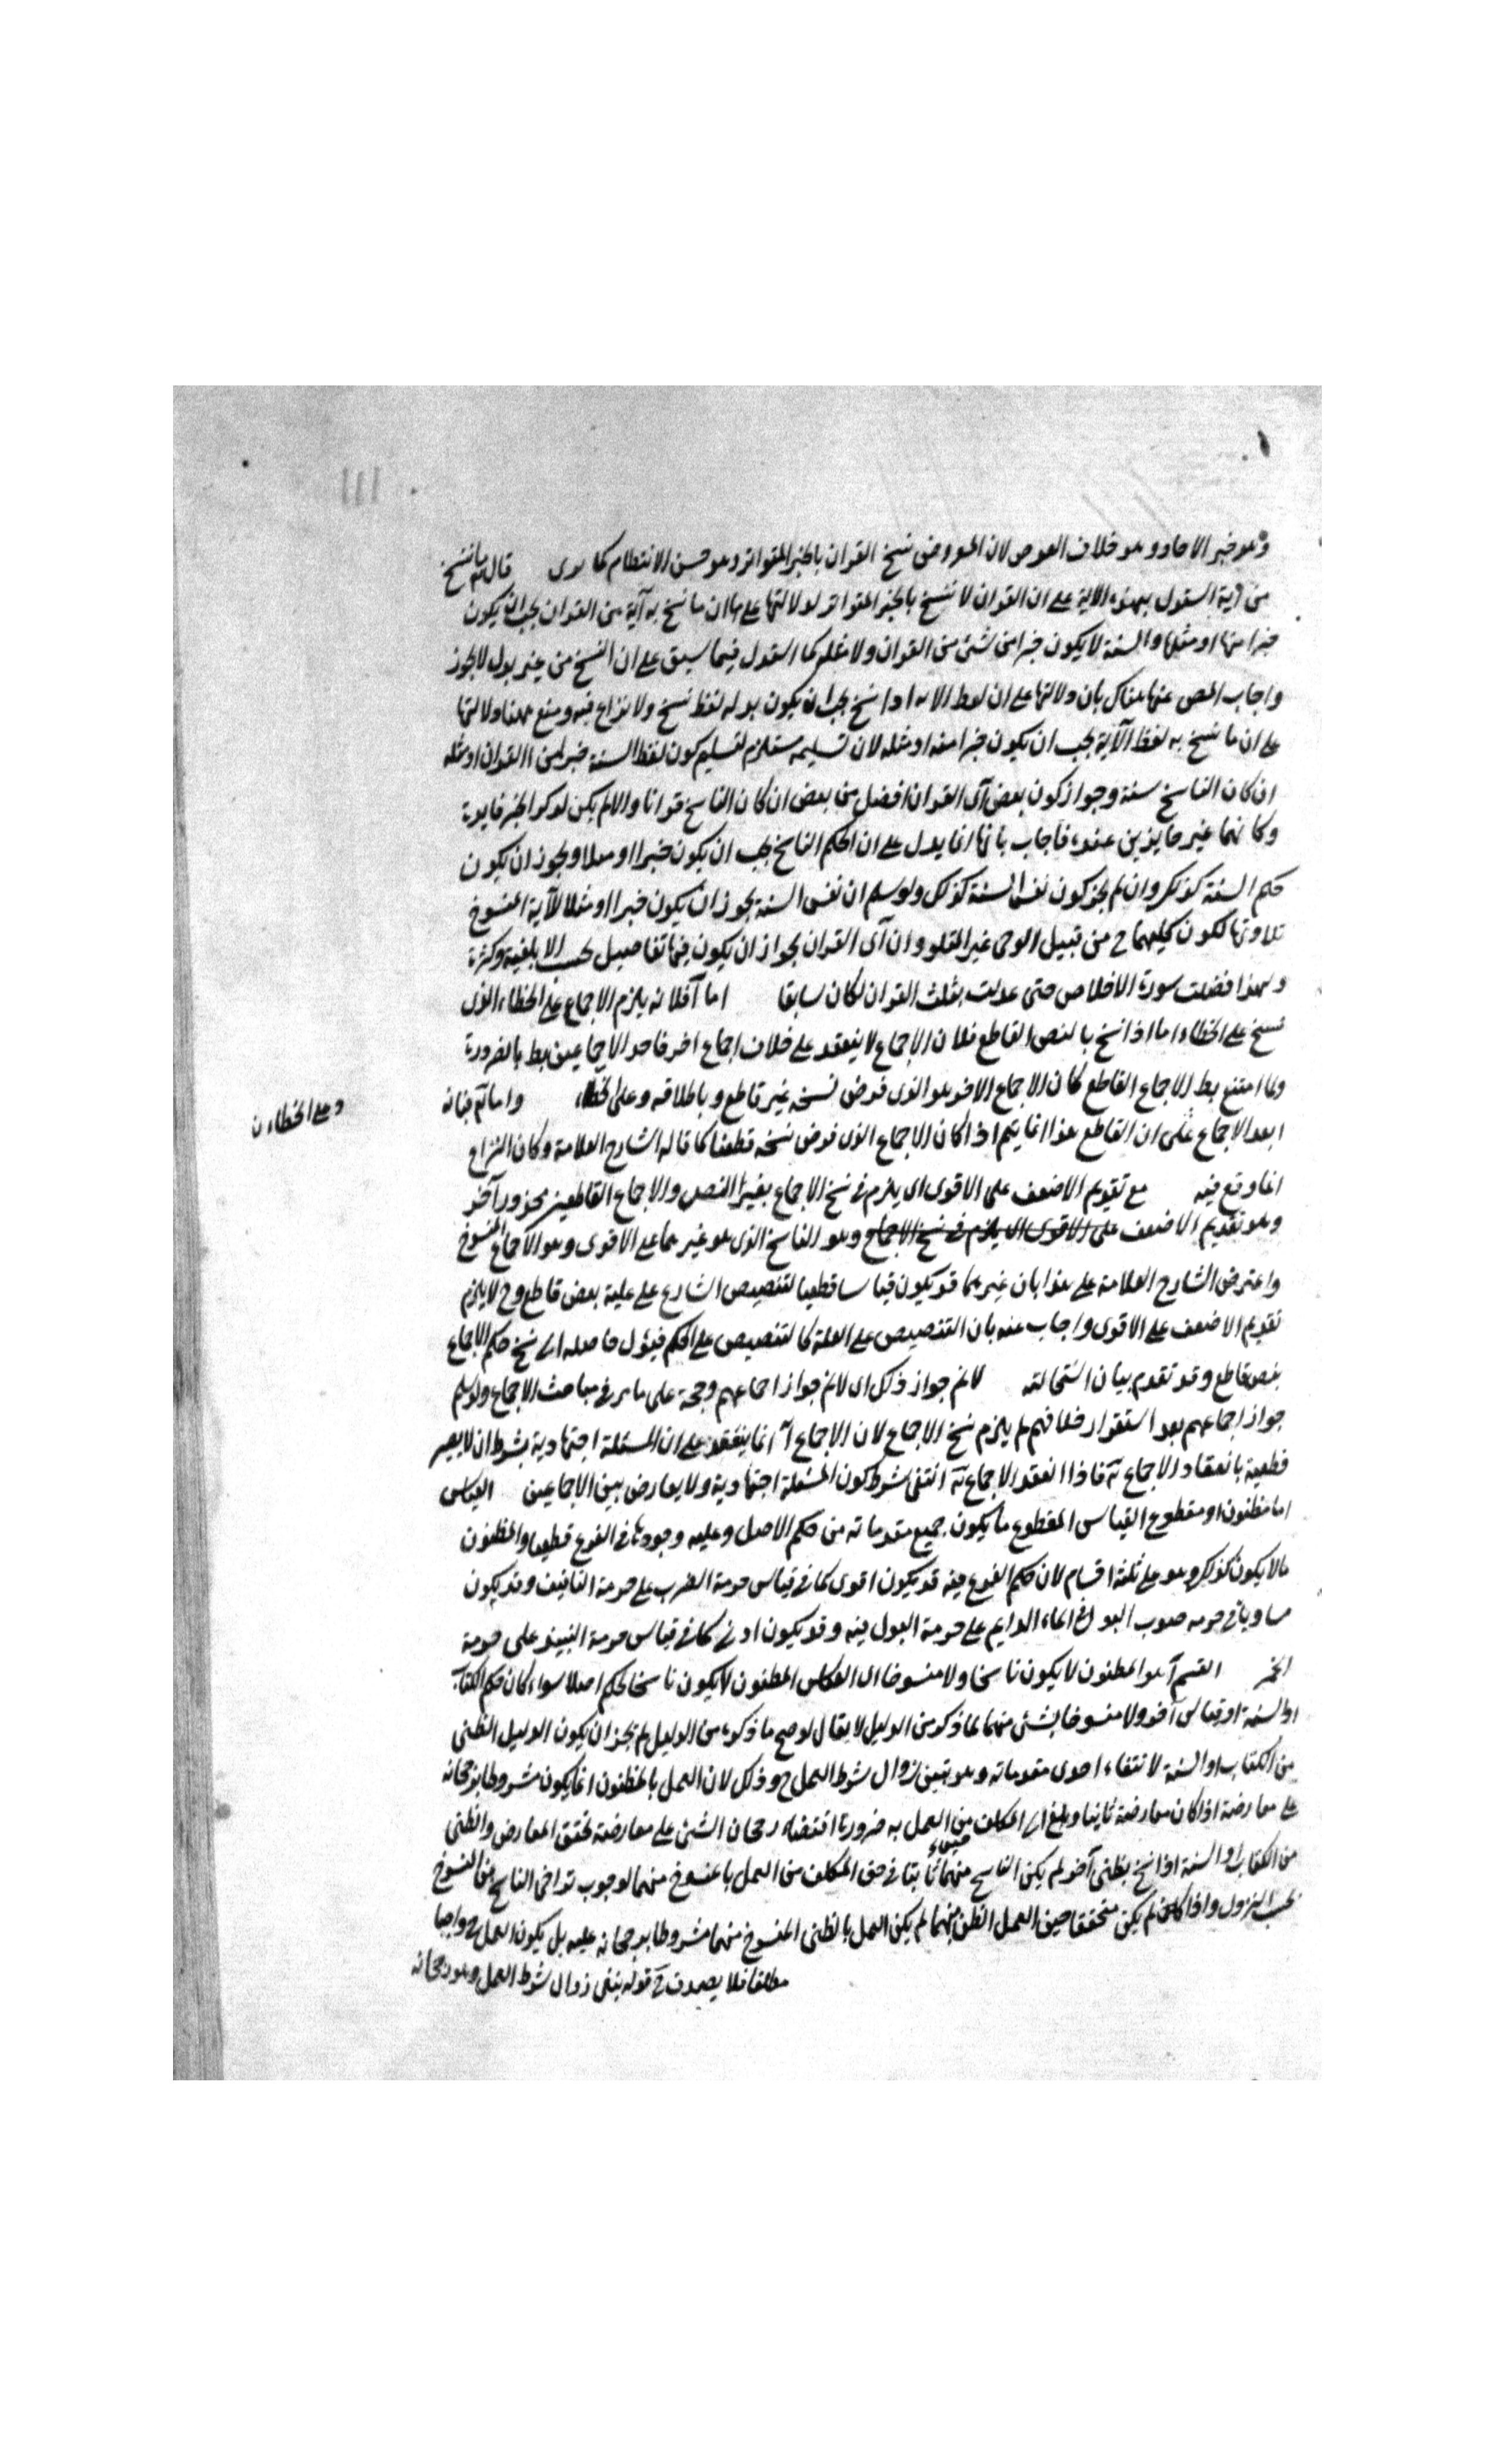 وهو خبر الاحاد وهو خلاف الفرض لان المفروض نسخ القران بالخبر المتواتر وهو حسن الانتظام كما ترى قال ما ننسخ
من آية استدل بهذه الاية على ان القران لا ينسخ بالخبر المتواتر لدلالتها على ان ما نسخ به آية من القران يجب ان يكون
خيرا منها او مثلها والسنة لا يكون خيرا من شئ من القران ولا مثله كما استدل فيما سبق على ان النسخ من غير بدل لا يجوز
واجاب المص عنها هناك بان دلالتها على ان لفظ الاية اذا نسخ يجب ان يكون بدله لفظ نسخ ولا نزاع فيه ومنع ههنا دلالتها
على ان ما نسخ به لفظ الآية يجب ان يكون خيرا منه او مثله لان تسليمه مستلزم لتسليم كون لفظ السنة خيرا من القران او مثله
ان كان الناسخ سنة وجواز كون بعض آى القران افضل من بعض ان كان الناسخ قرانا والا لم يكن لذكر الخير فايدة
وكانهما غير جايزين عنده فاجاب بانها انما يدل على ان الحكم الناسخ يجب ان يكون خيرا او مثلا ويجوز ان يكون
حكم السنة كذلك وان لم يجز كون نفس السنة كذلك ولو سلم ان نفس السنة يجوز ان يكون خيرا او مثلا للآية المنسوخ
تلاوتها لكون كليهما ح من قبيل الوحى غير المتلو وان آى القران بجواز ان يكون فيها تفاضل بحسب الابلغية وكثرة
ولهذا فضلت سورة الاخلاص حتى عدلت بثلث القران لكان سابقا اما آ فلانه يلزم الاجماع على الخطاء الذى
نسخ على الخطاء اما اذا نسخ بالنص القاطع فلان الاجماع لا ينعقد على خلاف اجماع اخر فاحد الاجماعين بط بالضرورة
ولما امتنع بط الاجماع القاطع كان الاجماع الاخر هو الذى فرض نسخه غير قاطع وباطلاقه وعلى الخطاء واما آ فبانه
وعلى الخطاء ن
ابعد الاجماع على ان القاطع هذا انما يتم اذا كان الاجماع الذى فرض نسخه قطعنا كما قاله الشارح العلامة وكان النزاع
انما وقع فيه مع تقديم الاضعف على الاقوى اى يلزم فى نسخ الاجماع بغير النص والاجماع القاطعين محذور آخر
وهو تقديم الاضعف على الاقوى اى يلزم فى نسخ الاجماع وهو الناسخ الذى هو غيرهما على الاقوى وهو الاجماع المنسوخ
واعترض الشارح العلامة على هذا بان غيرهما قد يكون قياسا قطعيا لتنصيص الشارع على علية بعض قاطع وح لا يلزم
تقديم الاضعف على الاقوى واجاب عنه بان التنصيص على العلة كالتنصيص على الحكم فيؤل حاصله الى نسخ حكم الاجماع
بنص قاطع وقد تقدم بيان استحالته لانم جواز ذلك اى لانم جواز اجماعهم وحجة على ما مر فى مباحث الاجماع ولو سلم
جواز اجماعهم بعد استقرار خلافهم لم يلزم نسخ الاجماع لان الاجماع آ انما ينعقد على ان المسئلة اجتهادية بشرط ان لا يصير
قطعية بانعقاد الاجماع ثه فاذا انعقد الاجماع ثه انتفى شرط كون المسئلة اجتهادية ولا يعارض بين الاجماعين القياس
اما مظنون او مقطوع القياس المقطوع ما يكون جميع مقدماته من حكم الاصل وعليه وجودها فى الفرع قطعيا والمظنون
ما لا يكون كذلك وهو على ثلثة اقسام لان حكم الفرع فيه قد يكون اقوى كما فى قياس حرمة الضرب على حرمة التافيف وقد يكون
مساويا فى حرمه صوب البول فى الماء الدايم على حرمة البول فيه وقد يكون ادنى كما فى قياس حرمة النبيذ على حرمة
الخمر القسم آ هو المظنون لا يكون ناسخا ولا منسوخا اى القياس المظنون لا يكون ناسخا لحكم اصلا سواء كان حكم الكتاب
او السنة او قياس آخر ولا منسوخا بشئ منهما لما ذكر من الدليل لا يقال لو صح ما ذكره من الدليل لم يجز ان يكون الدليل الظنى
من الكتاب او السنة لانتفاء احدى مقدماته وهو تبين زوال شرط العمل ح وذلك لان العمل بالمظنون انما يكون مشروطا برجحانه
على معارضة اذا كان معارضة ثابتا وبلغ الى المكلف من العمل به ضرورة اقتضاء رجحان الشئ على معارضة تحقق المعارض والظنى
من الكتاب او السنة اذا نسخ بظنى آخر لم يكن الناسخ منهما ثابتا فى حق المكلف من العمل بالمنسوخ منهما لوجوب تراخى الناسخ من المنسوخ
بحسب النزول واذا كان لم يكن متحققا حين العمل الظنى منهما لم يكن العمل بالظنى المنسوخ منهما مشروطا برجحانه عليه بل يكون العمل ح واجبا
مطلقا فلا يصدق ح قوله يتبين زوال شرط العمل وهو رجحانه